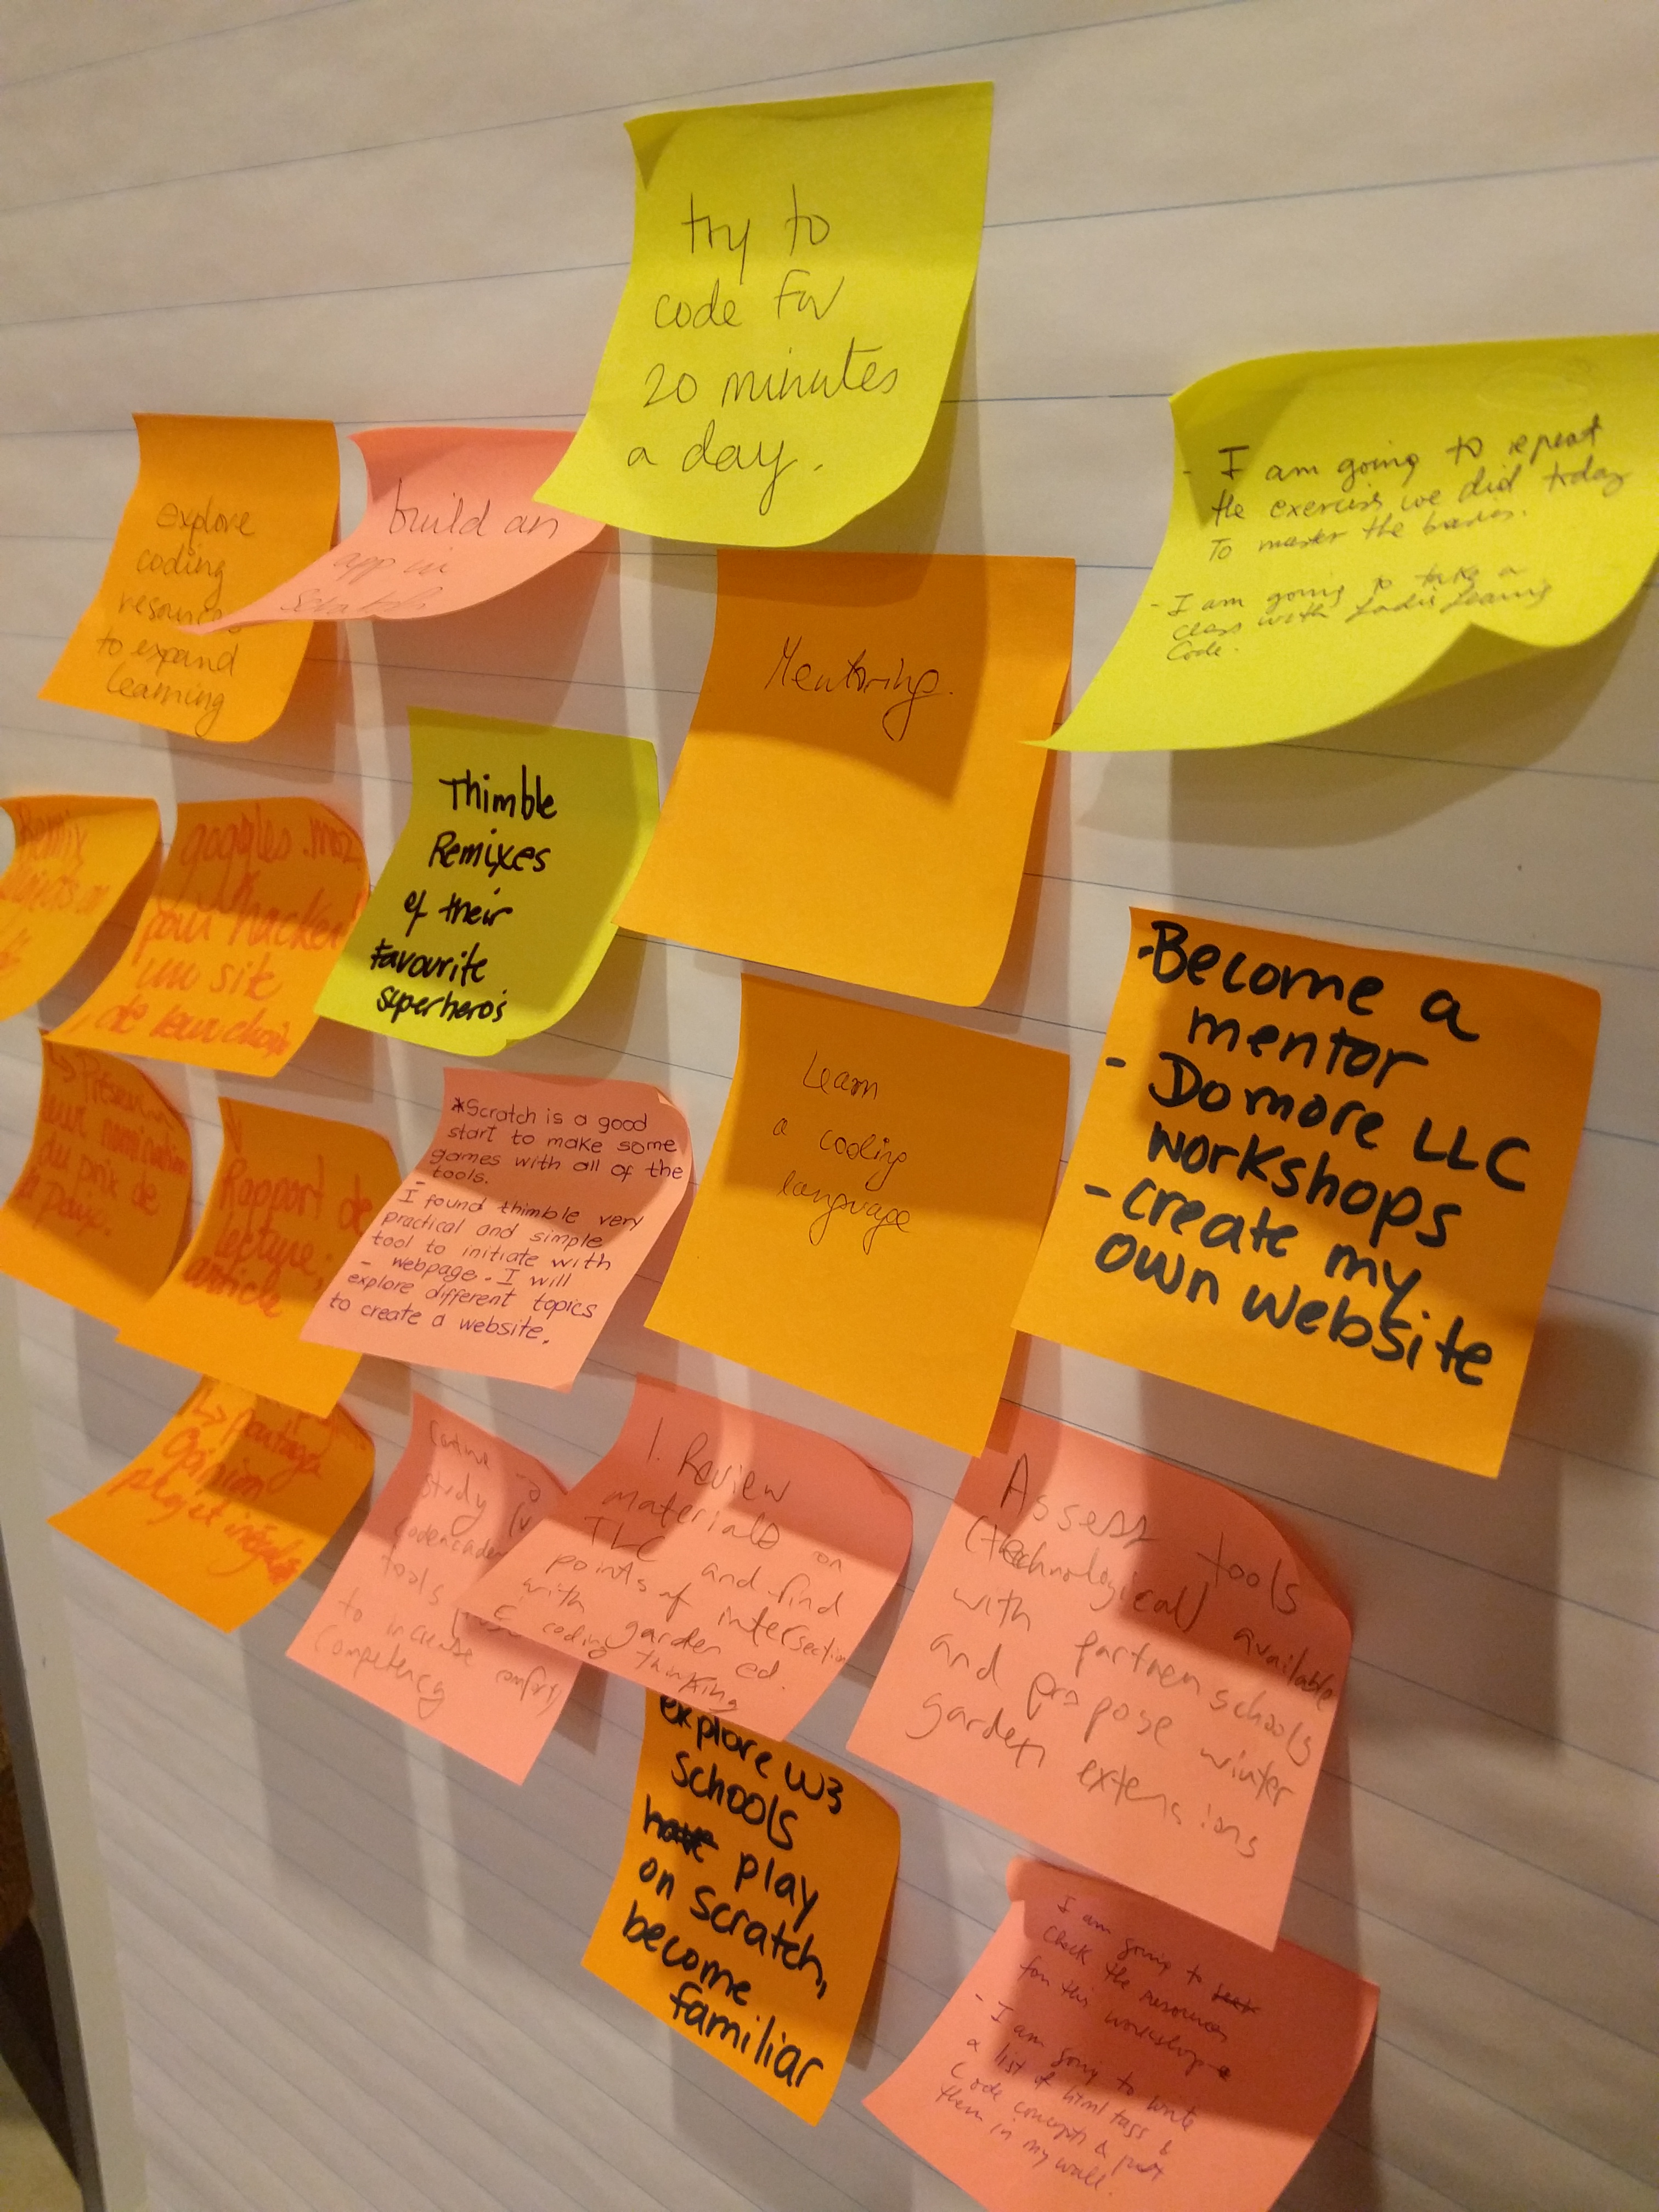 try to
code for
20 minutes
a day.
explore
coding
to expand
learning
build an
app in
Scratch
- I am going to repeat
the exercise we did today
To master the basics.
- I am going to take a
class with Ladies Learning
Code.
Mentoring.
Thimble
Remixes
of their
favourite
superhero's
Remix
goggles.moz
pour hacker
un site
de leur choix
-Become a
mentor
- Do more LLC
workshops
- create my
own website
Learn
a coding
language
leur nomination
du prix de
la paix.
Rapport de
lecture,
article
*Scratch is a good
start to make some
games with all of the
- tools.
I found thimble very
practical and simple
tool to initiate with
- webpage. I will
explore different topics
to create a website.
Opinion
projet intégré
study
tools
to increase
competency
1. Review
materials on
TLC and find
points of intersection
with garden ed.
& coding thinking
Assess tools
(technological) available
with partner schools
and propose winter
garden extensions
explore W3
schools
have play
on scratch,
become
familiar
I am going to
check the resources
for this workshop
- I am going to write
a list of html tags &
Code concepts & put
them in my wall.